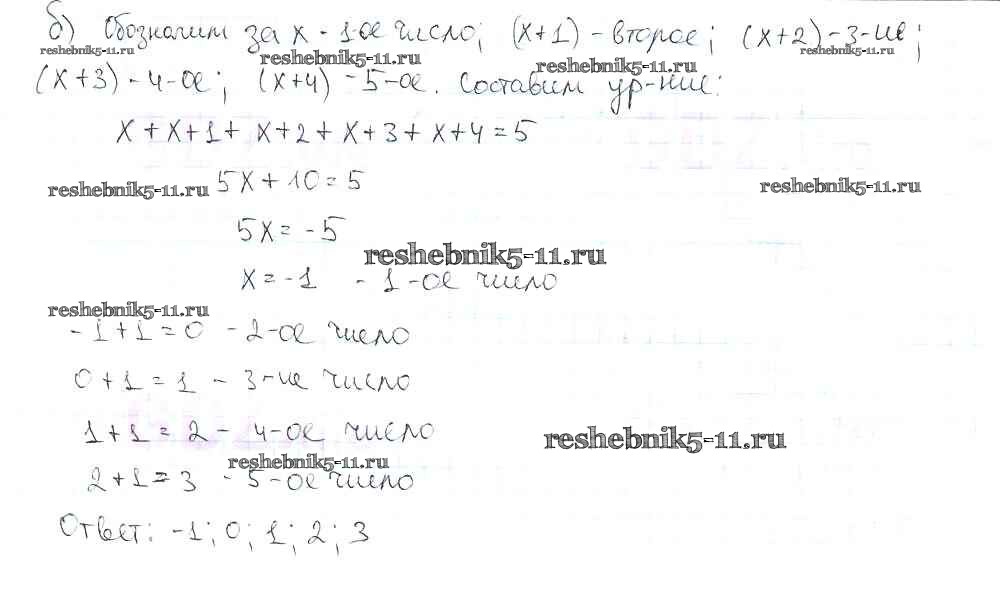 б) Обозначим за х - 1-ое число; (х+1) - второе; (х+2) - 3-ие;
reshebnik5-11.ru reshebnik5-11.ru reshebnik5-11.ru reshebnik5-11.ru
(х+3) - 4-ое; (х+4) - 5-ое. Составим ур-ние:
х + х+1 + х+2 + х+3 + х+4 = 5
5х + 10 = 5
reshebnik5-11.ru reshebnik5-11.ru
5х = -5
reshebnik5-11.ru
х = -1 - 1-ое число
reshebnik5-11.ru
-1+1 = 0 - 2-ое число
0+1 = 1 - 3-ие число
1+1 = 2 - 4-ое число
reshebnik5-11.ru
reshebnik5-11.ru
2+1 = 3 - 5-ое число
Ответ: -1; 0; 1; 2; 3